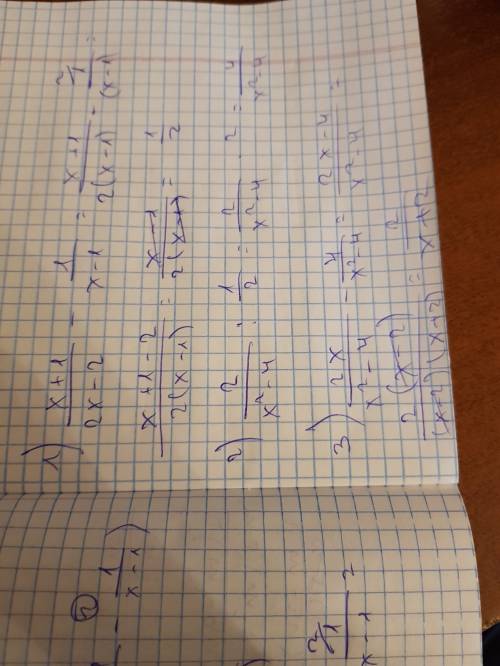 1) (x+1)/(2x-2) - 1/(x-1) = (x+1)/(2(x-1)) - 1/(x-1) =
(x+1-2)/(2(x-1)) = (x-1)/(2(x-1)) = 1/2
2) 2/(x²-4) : 1/2 = 2/(x²-4) · 2 = 4/(x²-4)
3) 2x/(x²-4) - 4/(x²-4) = (2x-4)/(x²-4) =
2(x-2)/((x-2)(x+2)) = 2/(x+2)
- 1/(x-1))